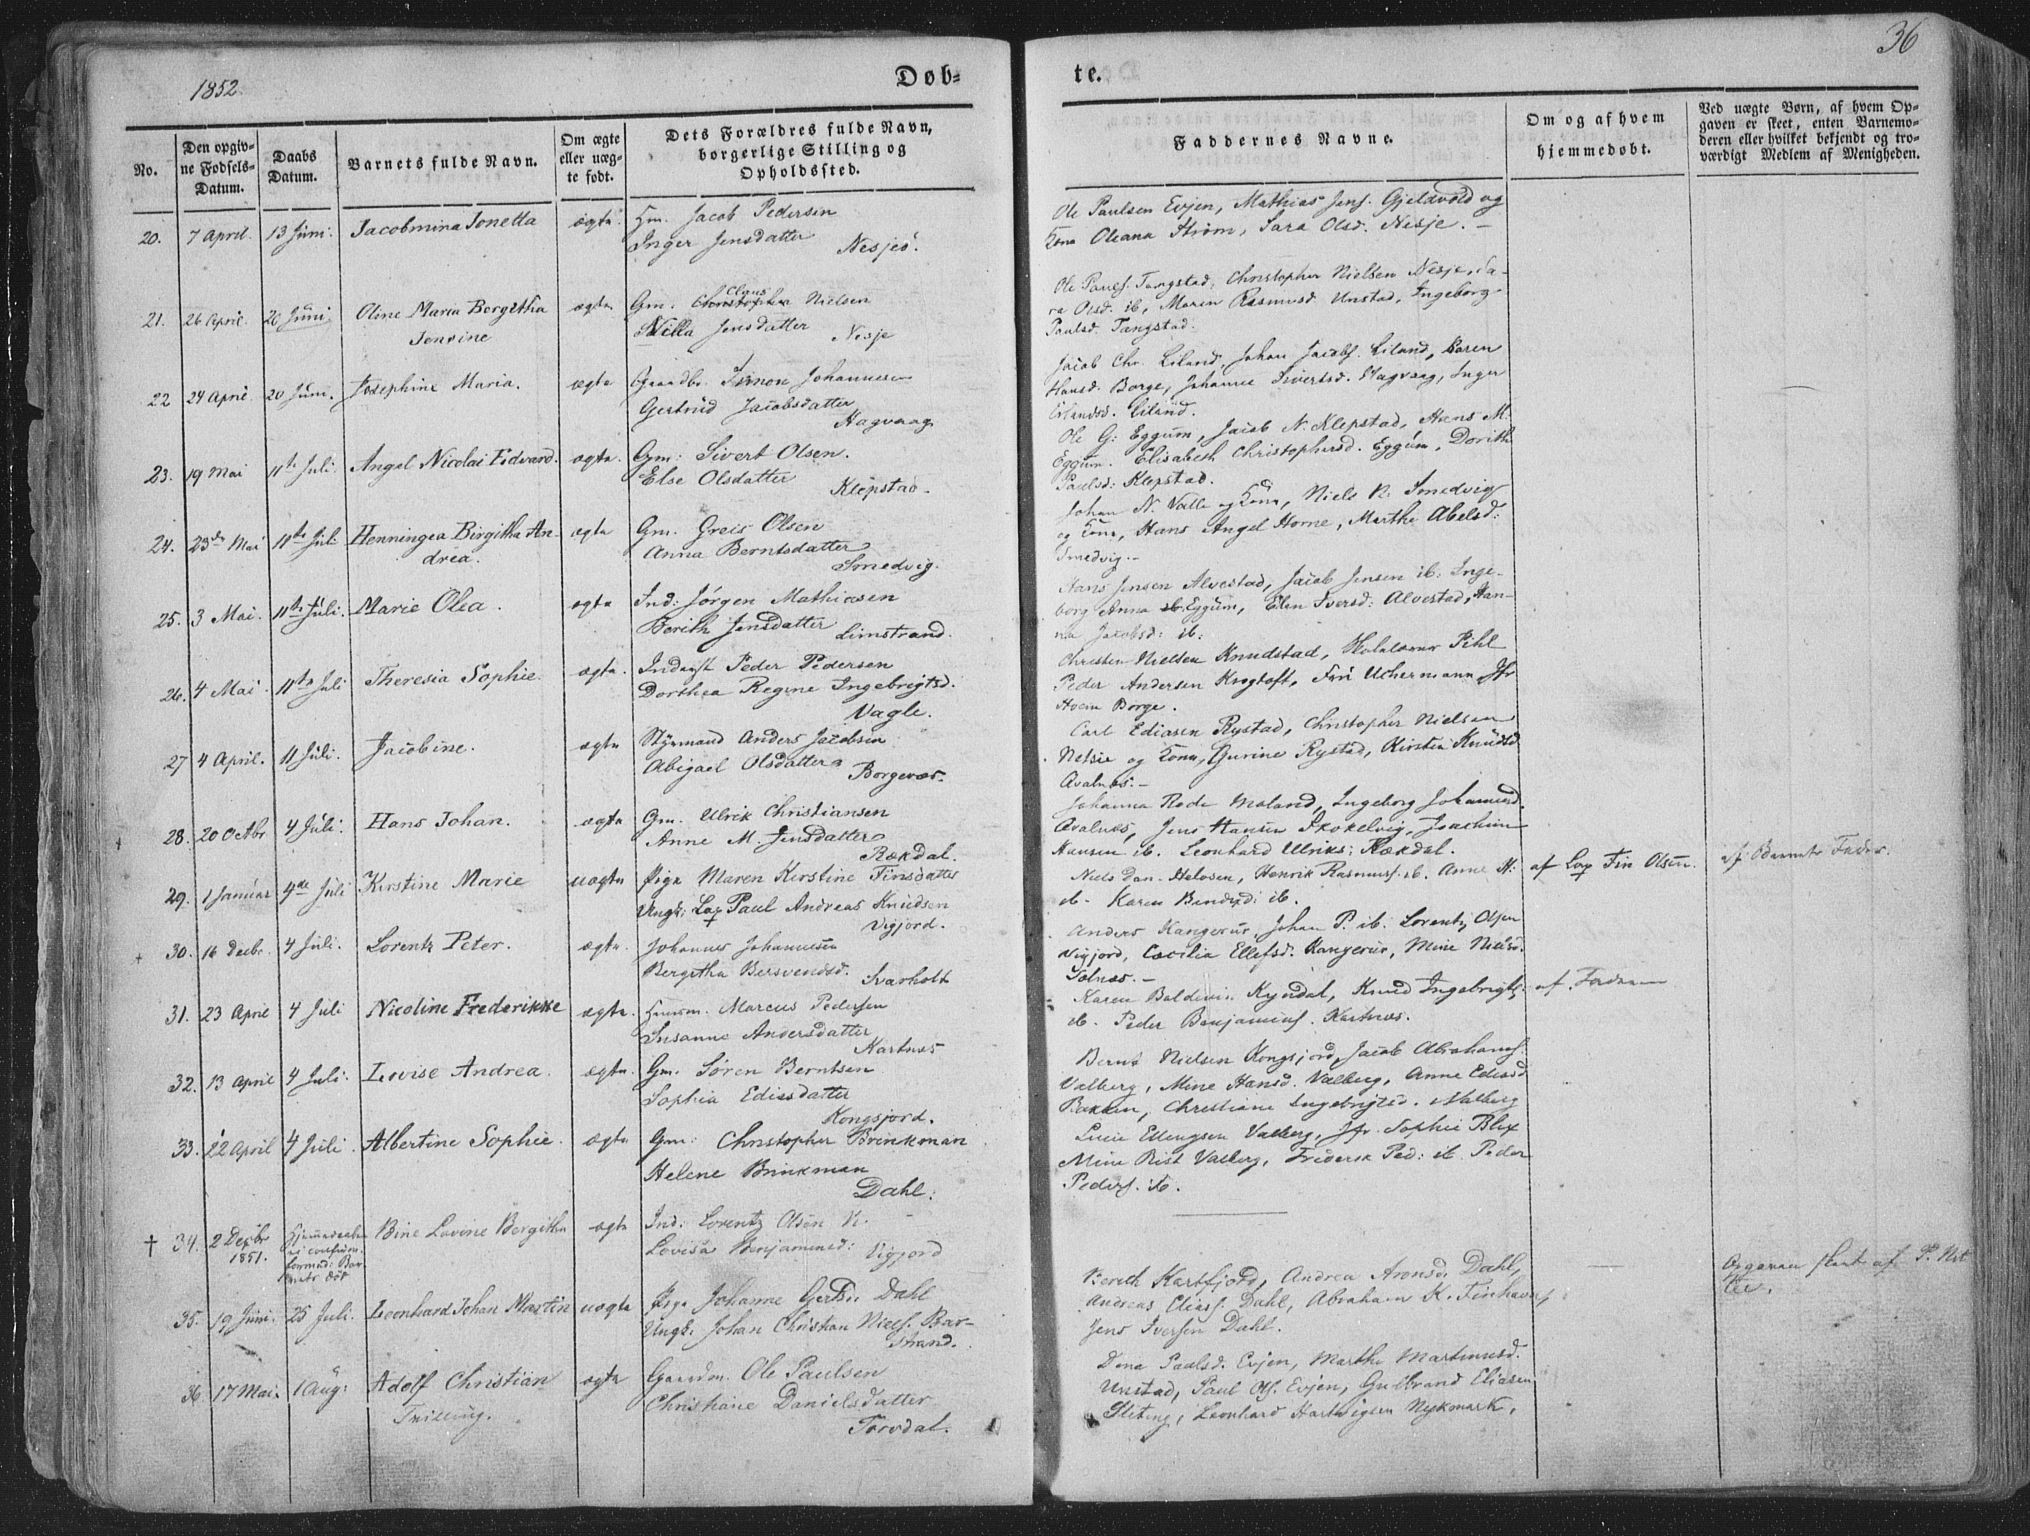 1852
Døb=
te.
36
No.
Den opgiv-
ne Fødsels-
Datum.
Daabs
Datum.
Barnets fulde Navn.
Om ægte
eller uæg-
te født.
Dets Forældres fulde Navn,
borgerlige Stilling og
Opholdssted.
Faddernes Navne.
Om og af hvem
hjemmedøbt.
Ved uægte Børn, af hvem Op-
gaven er skeet, enten Barnemo-
deren eller hvilket bekjendt og tro-
værdigt Medlem af Menigheden.
20. 7 April. 13 Juni. Jacobmina Jonetta ægte. Gm. Jacob Pedersen
Inger Jensdatter
Nesjeö.
Ole Paulsen Evjen, Mathias Jens. Gjeldvold og
Kona Oleana Strøm, Sara Olsd. Nesje. -
21. 26 April. 20 Juni Oline Maria Bergitha
Jenvine
ægte Gm. Claus Nielsen
Nilla Jensdatter
Nesje
Ole Pauls. Tangstad, Christopher Nielsen Nesje, Sa-
ra Olsd. ib, Maren Rasmusd. Unstad, Ingeborg
Paulsd. Tangstad.
22 24 April. 20 Juni. Josephine Maria. ægte Gaardbr. Simon Johannesen
Gertrud Jacobsdatter
Hagvaag
Jacob Chr. Liland, Johan Jacobs. Liland, Karen
Hansd. Borge, Johanne Sivertsd. Hagvaag, Inger
Erlandsd. Liland.
23. 19 Mai 11te Juli. Angel Nicolai Edvard. ægte. Gm: Sivert Olsen.
Else Olsdatter
Klepstad.
Ole G. Eggum, Jacob N. Klepstad, Hans M.
Eggum. Elisabeth Christophersd. Eggum, Dorith
Paulsd: Klepstad.
24. 23de Mai 11te Juli Henningea Birgitha An-
drea.
ægte Gm. Greis Olsen
Anna Berntsdatter
Smedvig.
Johan N. Valle og Kona, Niels N. Smedvig
og Kona, Hans Angel Horne, Marthe Abelsd:
Smedvig. -
25. 3 Mai. 11te Juli. Marie Olea. ægte Ind: Jörgen Mathiasen
Berith Jensdatter
Limstrand.
Hans Jensen Alvestad, Jacob Jensen ib. Inge-
borg Anna Eggum, Elen Iversd: Alvestad, Han-
na Jacobsd: ib:
26. 4 Mai. 11te Juli Theresia Sophie. ægte. Inderst Peder Pedersen
Dorthea Regine Ingebrigtsd.
Vagle.
Christen Nielsen Knudstad, Pihl
Peder Andersen Krogtoft, Fru Uchermann, Jfr
Hvem Borge.
27 4 April. 11 Juli. Jacobine. ægte Styrmand Anders Jacobsen
Abigael Olsdatter
Borgevær.
Carl Ediasen Rystad, Christopher Nielsen
Netsie og Kona, Gurine Rystad, Kirstin Knudsd
Avalnæs. -
28. 20 Octbr 4 Juli. Hans Johan. ægte Gm. Ulrik Christiansen
Anne M. Jensdatter
Rækdal.
Johanna Rode Moland, Ingeborg Johannesd.
Avalnæs, Jens Hansen Skokelvig, Joachim
Hansen ib. Leonhard Ulriks: Rækdal.
29. 1 Januar 4de Juli Kirstine Marie uægte Pige Maren Kirstine Finsdatter
Ungk: Lap Paul Andreas Knudsen
Vigjord.
Niels Dan. Helosen, Henrik Rasmus. ib. Anne H:
ib. Karen Bendixd: ib.
af Lap Fin Olsen.
af Barnets Fader.
+ 30. 16 Decbr. 4 Juli. Lorentz Peter. ægte. Johannes Johannesen
Bergitha Bersvendsd.
Svarholt
Anders Kangerur, Johan P. ib. Lorentz Olsen
Vigjord, Cæcilia Ellefsd. Kangerur, Mine Nielsd.
Solnæs. -
31. 23 April 4 Juli Nicoline Frederikke ægte. Huusm. Marcus Pedersen
Susanne Andersdatter
Kartnæs
Karen Baldevi. Kyndal, Knud Ingebrigts.
ib. Peder Benjamins. Kartnæs.
af Faderen
32. 13 April 4 Juli. Lovise Andrea. ægte. Gm. Sören Berntsen
Sophia Edissdatter
Kongsjord.
Bernt Nielsen Kongsjord, Jacob Abrahams.
Valberg, Mine Hansd. Valberg, Anne Edissd
Bakken, Christiane Ingebrigtsd. Malberg
33. 22 April 4 Juli. Albertine Sophie. ægte Gm: Christopher Brinkman
Helene Brinkman
Dahl.
Lucie Ellingsen Valberg, Jfr. Sophie Blix
Mine Rist Valberg, Frederik Ped: ib. Peder
Peders. ib.
† 34. 2 Decbr
1851.
Bine Lovine Bergitha ægte Ind: Lorentz Olsen N.
Lovisa Benjaminsd: Vigjord
35. 19 Juni. 25 Juli. Leonhard Johan Martin uægte Pige Johanne Gertsd. Dahl
Ungk. Johan Christian Niels. Bar-
strand.
Bereth Kartfjord, Andrea Aronsd. Dahl,
Andreas Elias. Dahl, Abraham K. Finhavn
Jens Iversen Dahl.
Opgaven skeet af P. Nit
36 17 Mai. 1 Aug: Adolf Christian
Trilling.
ægte Gaardm. Ole Paulsen
Christiane Danielsdatter
Torvdal.
Dona Paulsd. Evjen, Marthe Martinusd.
Unstad, Paul Ols. Evjen, Gulbrand Eliasen
Steting, Leonhard Hartvigsen Nykmark.